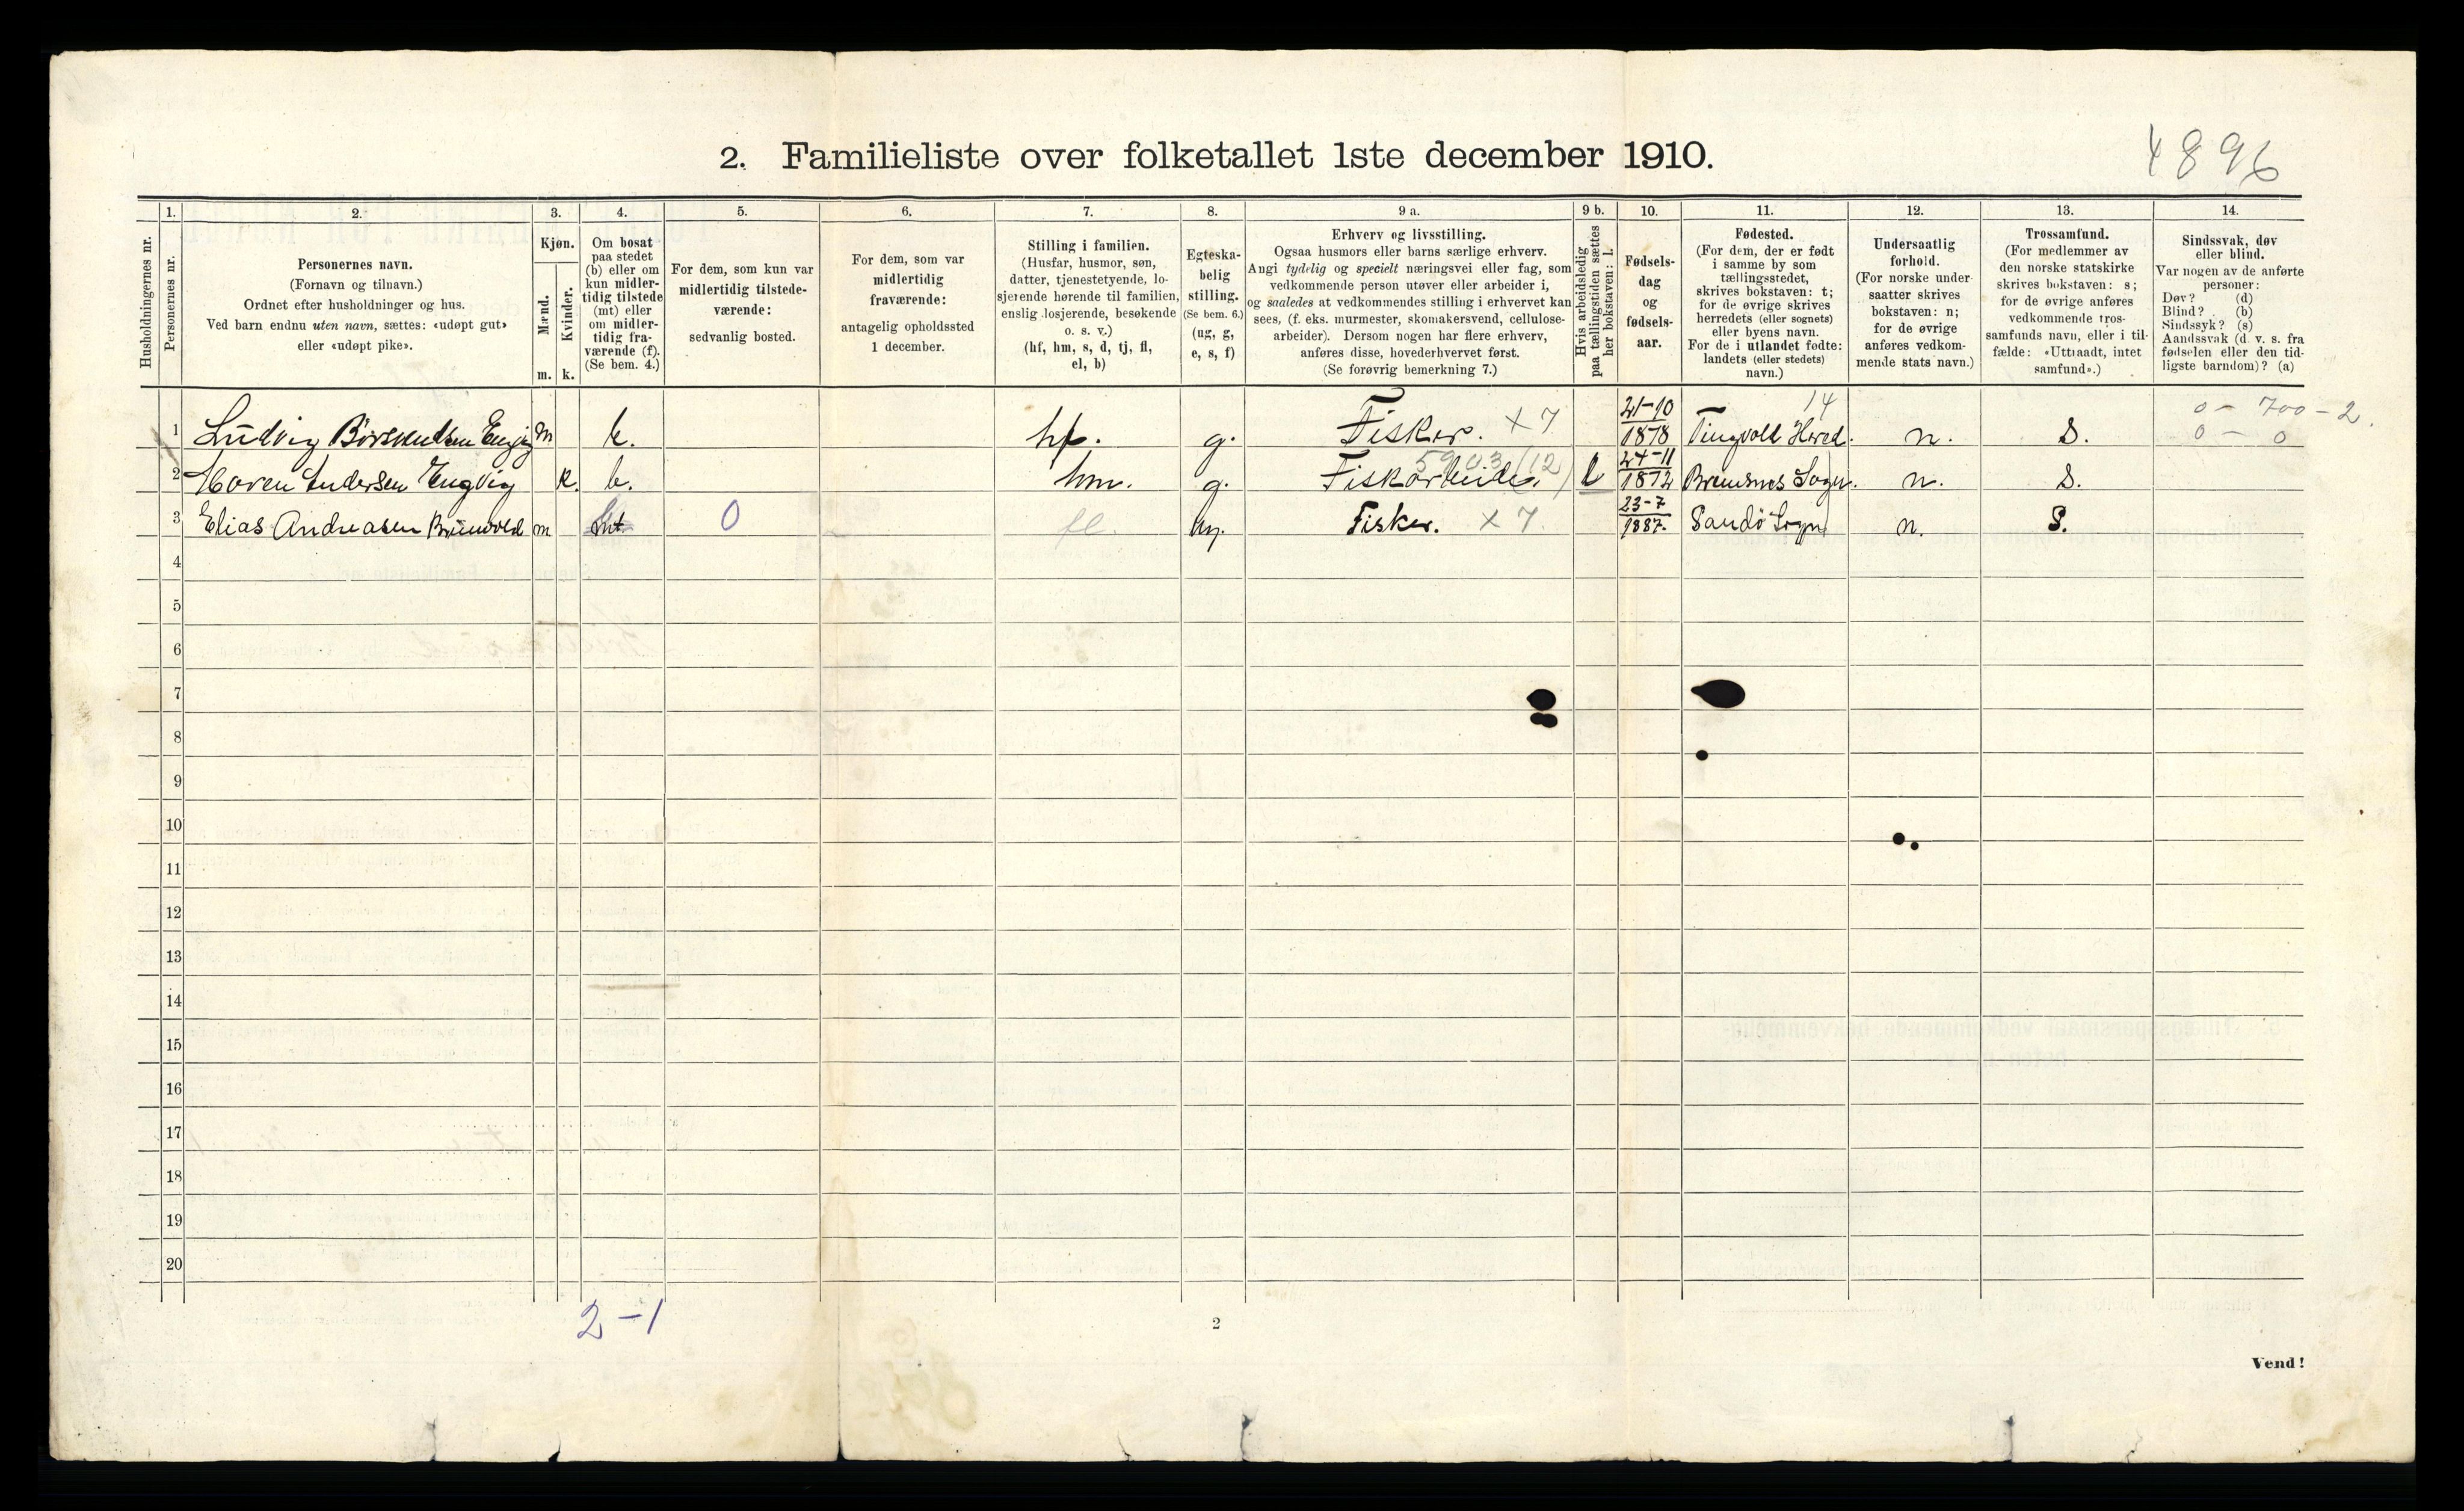 2. Familieliste over folketallet 1ste december 1910.
4896
1. 2. 3. 4. 5. 6. 7. 8. 9 a. 9 b. 10. 11. 12. 13. 14.
Husholdningernes nr.
Personernes nr.
Personernes navn.
(Fornavn og tilnavn.)
Ordnet efter husholdninger og hus.
Ved barn endnu uten navn, sættes: «udøpt gut»
eller «udøpt pike».
Kjøn.
Mænd.
m.
Kvinder.
k.
Om bosat
paa stedet
(b) eller om
kun midler-
tidig tilstede
(mt) eller
om midler-
tidig fra-
værende (f).
(Se bem. 4.)
For dem, som kun var
midlertidig tilstede-
værende:
sedvanlig bosted.
For dem, som var
midlertidig
fraværende:
antagelig opholdssted
1 december.
Stilling i familien.
(Husfar, husmor, søn,
datter, tjenestetyende, lo-
sjerende hørende til familien,
enslig losjerende, besøkende
o. s. v.)
(hf, hm, s, d, tj, fl,
el, b)
Egteska-
belig
stilling.
(Se bem. 6.)
(ug, g,
e, s, f)
Erhverv og livsstilling.
Ogsaa husmors eller barns særlige erhverv.
Angi tydelig og specielt næringsvei eller fag, som
vedkommende person utøver eller arbeider i,
og saaledes at vedkommendes stilling i erhvervet kan
sees, (f. eks. murmester, skomakersvend, cellulose-
arbeider). Dersom nogen har flere erhverv,
anføres disse, hovederhvervet først.
(Se forøvrig bemerkning 7.)
Hvis arbeidsledig
paa tællingstiden sættes
her bokstaven: l.
Fødsels-
dag
og
fødsels-
aar.
Fødested.
(For dem, der er født
i samme by som
tællingsstedet,
skrives bokstaven: t;
for de øvrige skrives
herredets (eller sognets)
eller byens navn.
For de i utlandet fødte:
landets (eller stedets)
navn.)
Undersaatlig
forhold.
(For norske under-
saatter skrives
bokstaven: n;
for de øvrige
anføres vedkom-
mende stats navn.)
Trossamfund.
(For medlemmer av
den norske statskirke
skrives bokstaven: s;
for de øvrige anføres
vedkommende tros-
samfunds navn, eller i til-
fælde: «Uttraadt, intet
samfund».)
Sindssvak, døv
eller blind.
Var nogen av de anførte
personer:
Døv? (d)
Blind? (b)
Sindssyk? (s)
Aandssvak (d. v. s. fra
fødselen eller den tid-
ligste barndom)? (a)
14 0 - 700 - 2.
1 Ludvig m b. hf. g. Fisker. X 7 21-10 1878 Tingvold Hered. n. S. 0 - 0
5903 (12)
2 Andersen Engvig k. b. hm. g. Fiskarbeider l 24-11 1872 Bremsnes Sogn. n. S.
3 Elias Andreasen m mt 0 fl. ug. Fisker. X 7. 23-7 1887. Sandö Sogn n. S.
4
5
6
7
8
9
10
11
12
13
14
15
16
17
18
19
20
2-1
2
Vend!